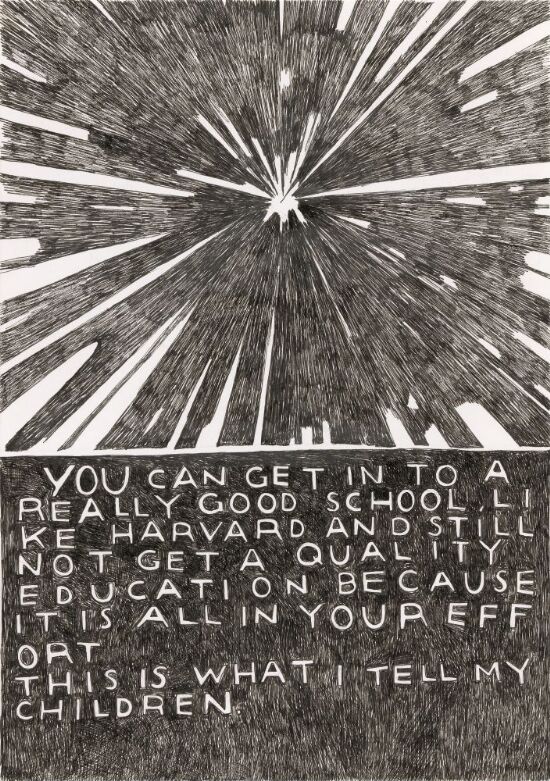 YOU CAN GET IN TO A
REALLY GOOD SCHOOL, LI
KE HARVARD AND STILL
NOT GET A QUALITY
EDUCATION BECAUSE
IT IS ALL IN YOUR EFF
ORT
THIS IS WHAT I TELL MY
CHILDREN.